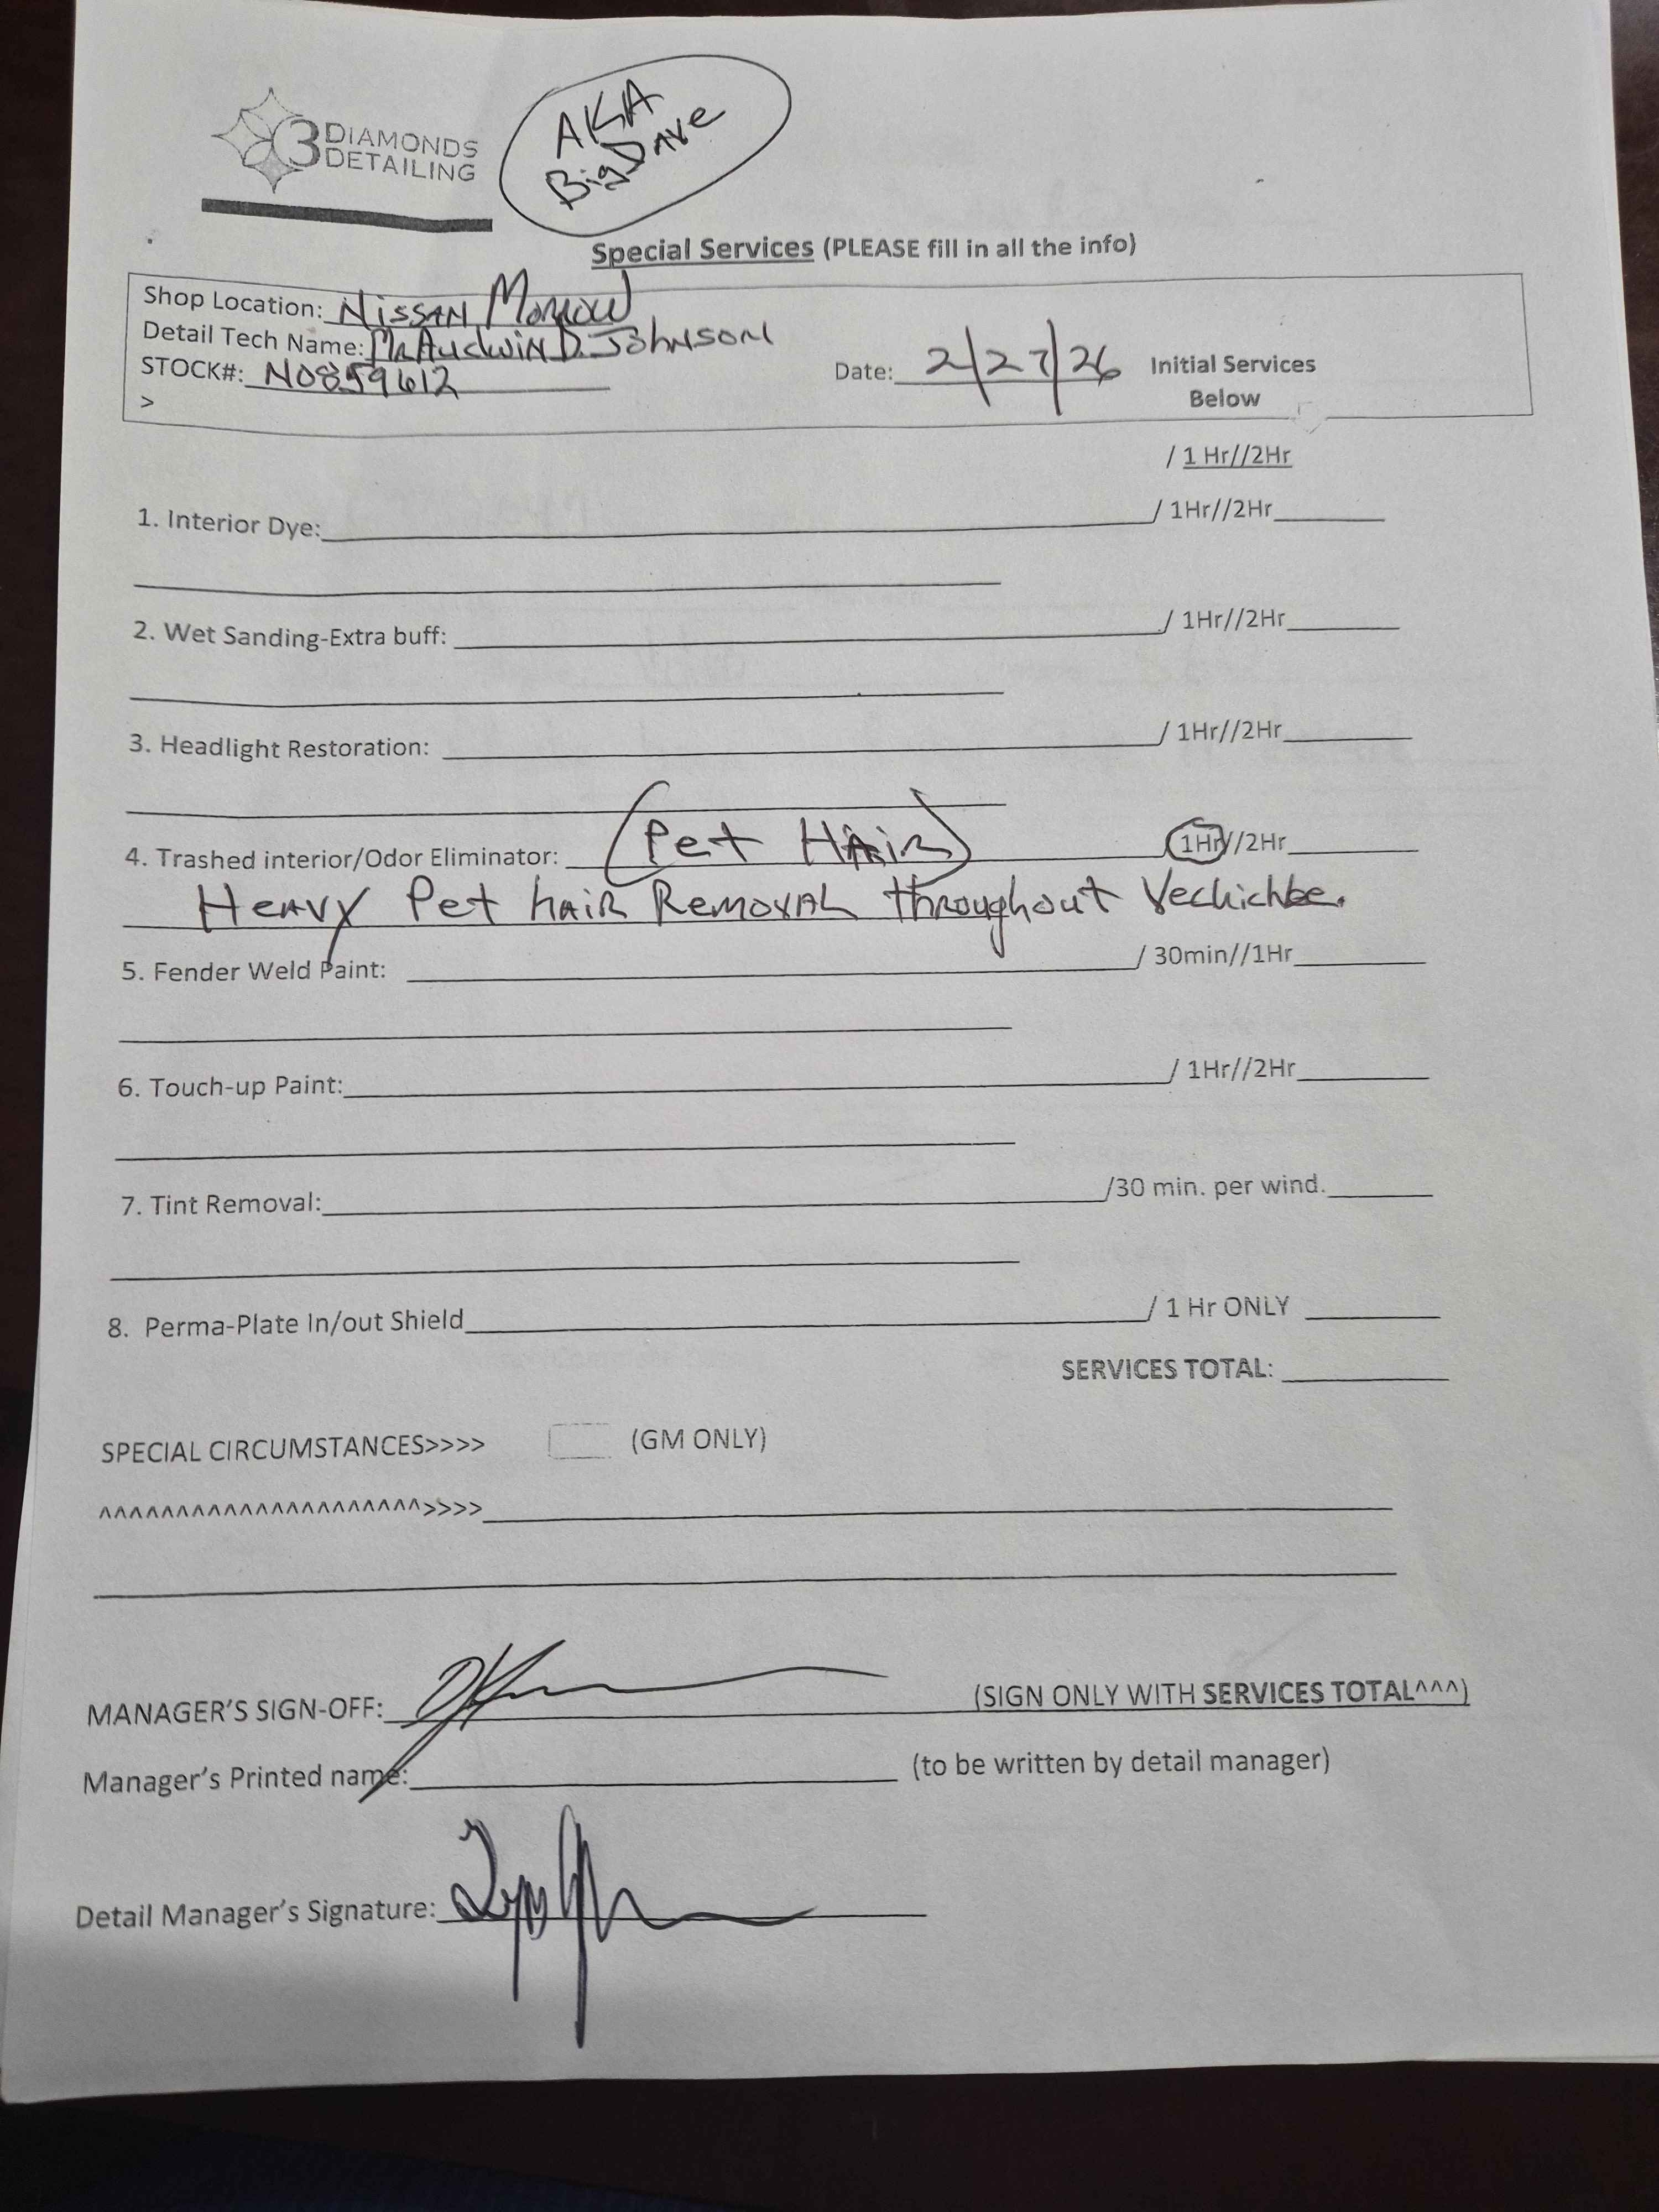 3 DIAMONDS
DETAILING
AKA
Big Dave
Special Services (PLEASE fill in all the info)
Shop Location: Nissan Morrow
Detail Tech Name: Mr Audwin D. Johnson
STOCK#: N0859612
Date: 2/27/26 Initial Services
Below
>
/ 1 Hr//2Hr
1. Interior Dye: / 1Hr//2Hr
2. Wet Sanding-Extra buff: / 1Hr//2Hr
3. Headlight Restoration: / 1Hr//2Hr
4. Trashed interior/Odor Eliminator: (Pet HAir) 1Hr//2Hr
Heavy Pet hair Removal throughout Vechichle.
5. Fender Weld Paint: / 30min//1Hr
6. Touch-up Paint: / 1Hr//2Hr
7. Tint Removal: /30 min. per wind.
8. Perma-Plate In/out Shield / 1 Hr ONLY
SERVICES TOTAL:
SPECIAL CIRCUMSTANCES>>>> (GM ONLY)
^^^^^^^^^^^^^^^^^^^^^>>>>
MANAGER'S SIGN-OFF: (SIGN ONLY WITH SERVICES TOTAL^^^)
Manager's Printed name: (to be written by detail manager)
Detail Manager's Signature: